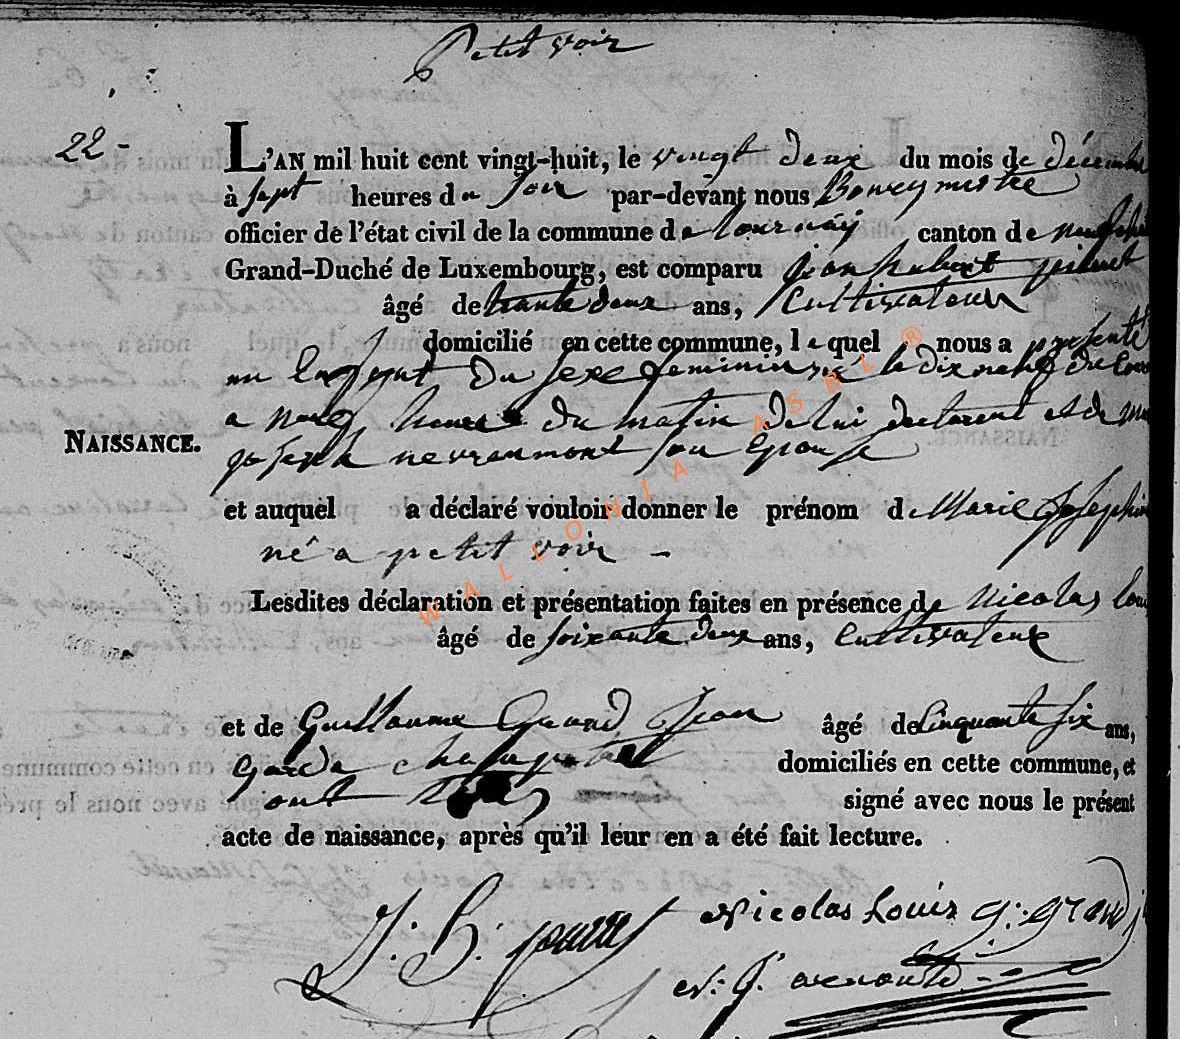 Petit voir
22-
L'AN mil huit cent vingt-huit, le vingt deux du mois de décembre
à sept heures du soir par-devant nous Bourgmestre
officier de l'état civil de la commune de tournay canton de
Grand-Duché de Luxembourg, est comparu jean hubert
âgé de trente deux ans, Cultivateur
domicilié en cette commune, lequel nous a présenté
un Enfant du sexe feminin né le dix neuf du
a neuf heures du matin de lui declarant et de
NAISSANCE.
joseph nevraumont son Epouse
et auquel a déclaré vouloir donner le prénom de Marie Josephin
né a petit voir -
Lesdites déclaration et présentation faites en présence de Nicolas Lou
âgé de soixante deux ans, Cultivateur
et de Guillaume Grand Jean âgé de Cinquante six ans,
garde champetre domiciliés en cette commune, et
ont signé avec nous le présent
acte de naissance, après qu'il leur en a été fait lecture.
J: B: Nicolas Louis g: grand j
N: J.
WALLONIA ASBL ®